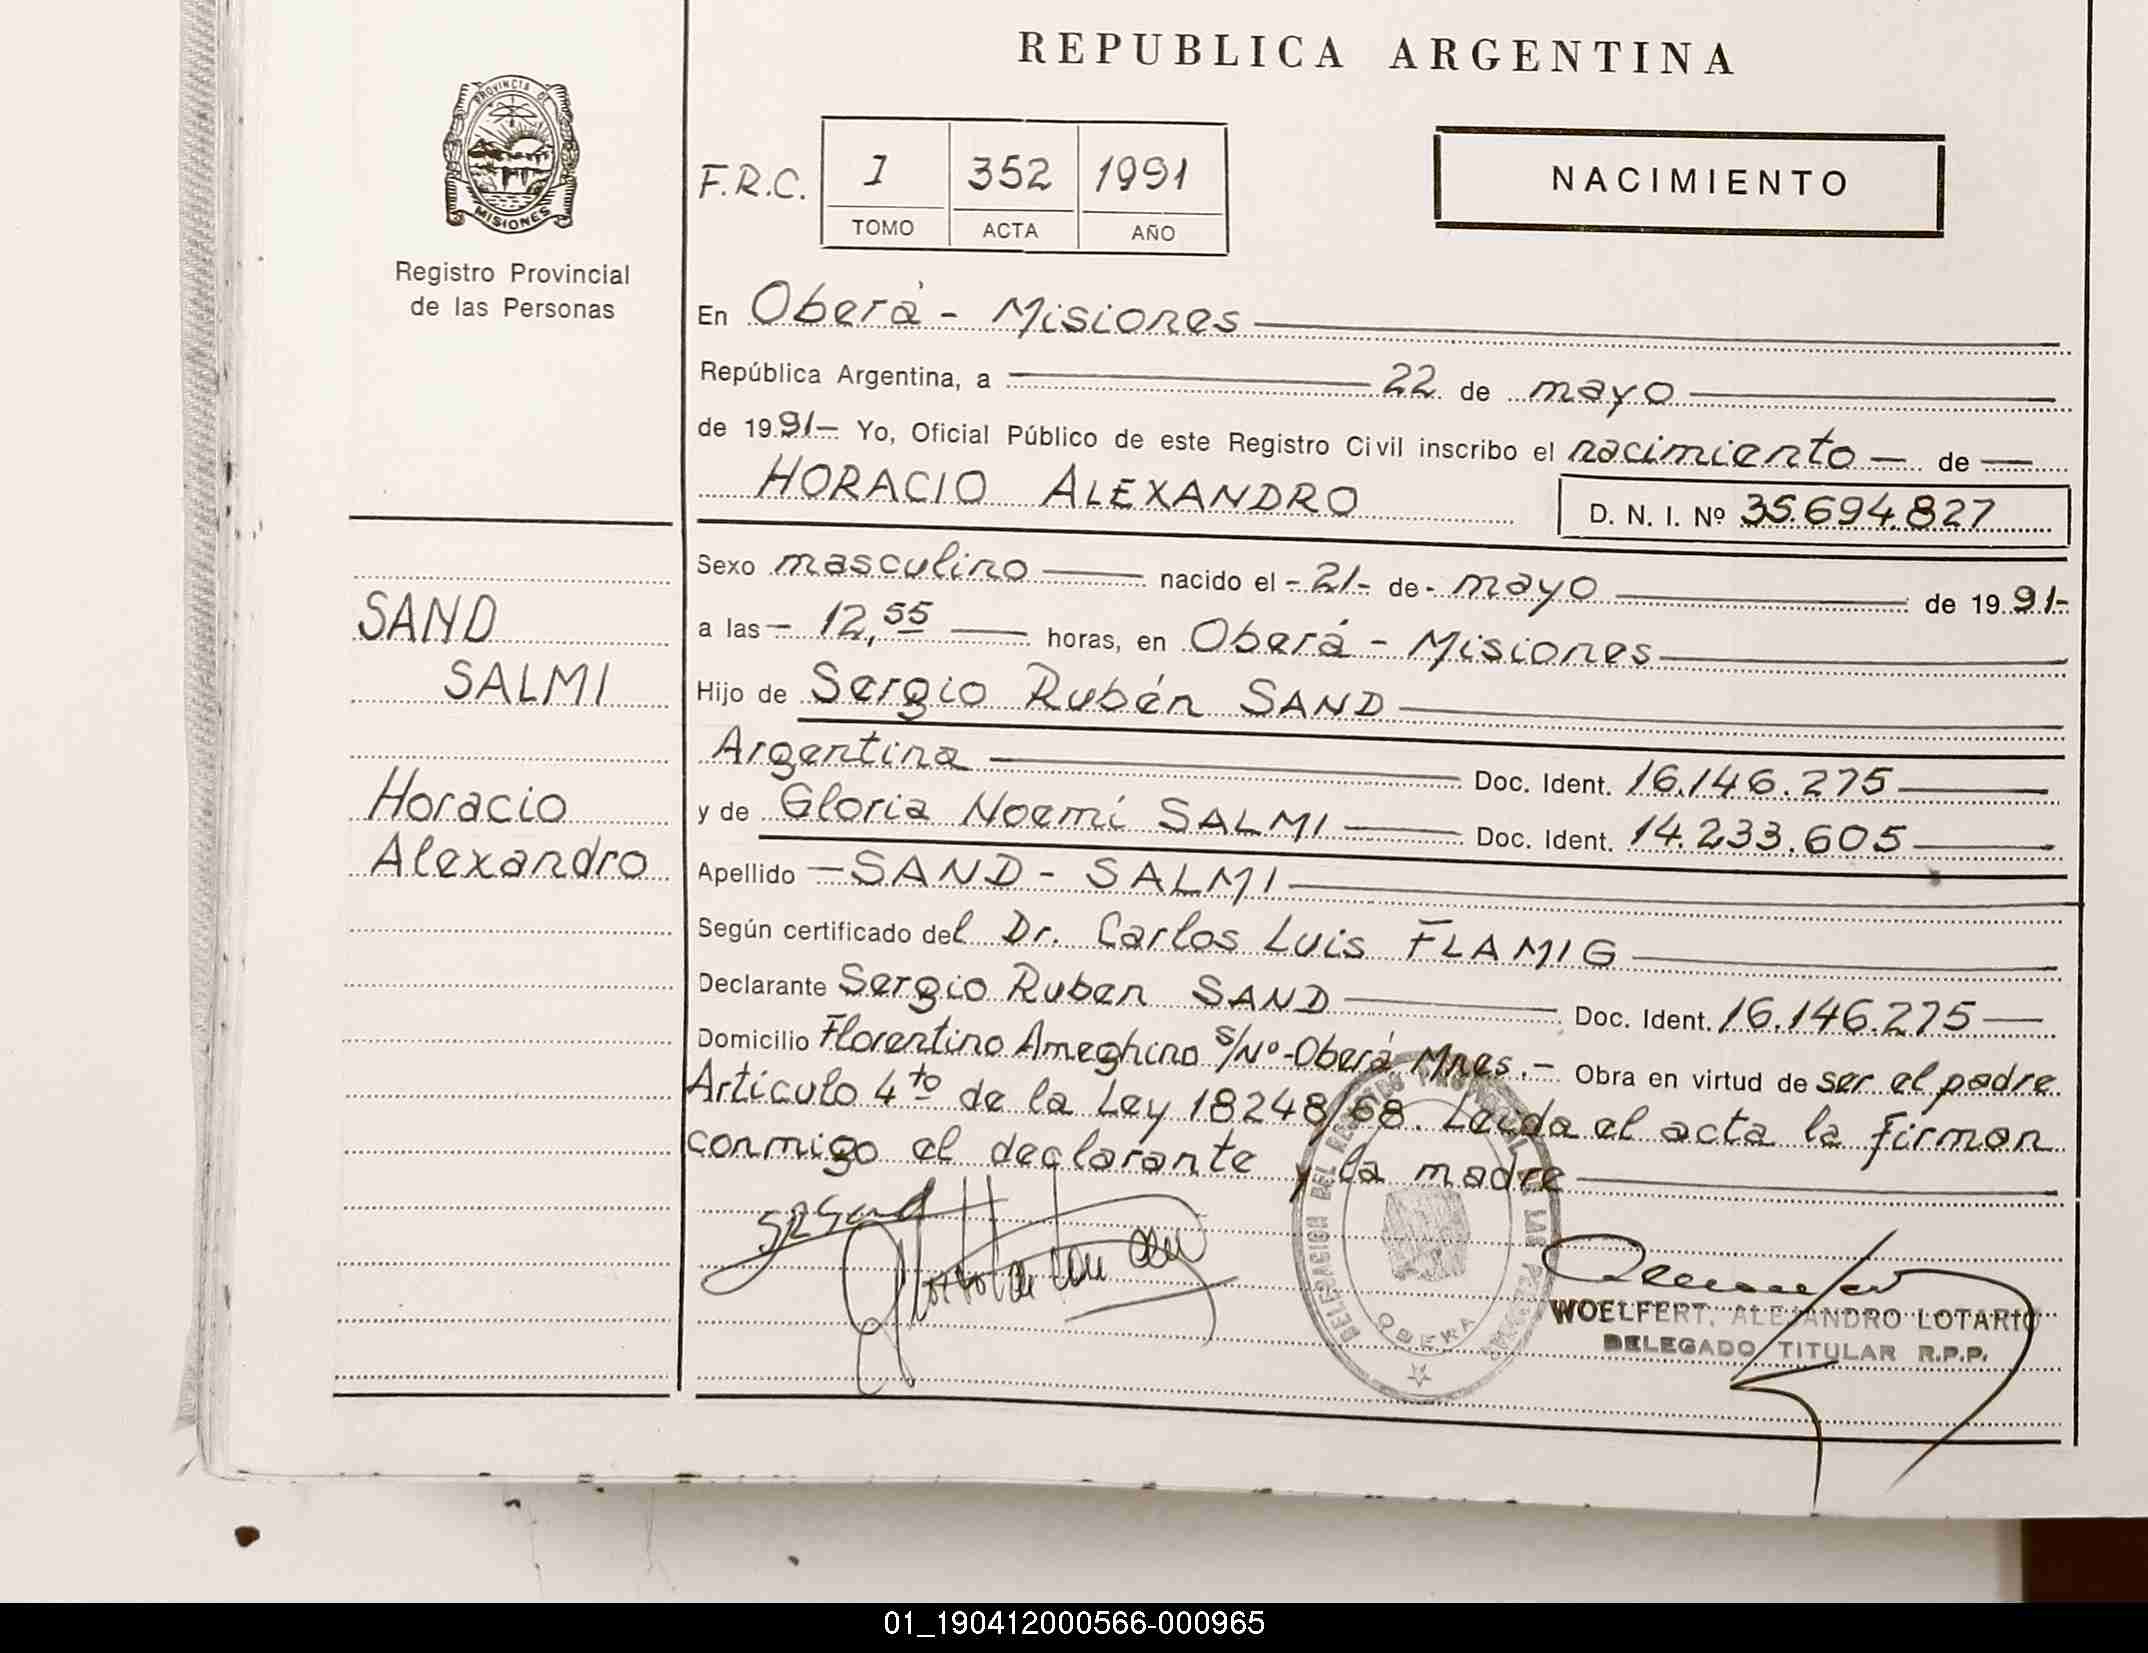 REPUBLICA ARGENTINA
PROVINCIA DE
MISIONES
Registro Provincial
de las Personas
F.R.C.
I 352 1991
TOMO ACTA AÑO
NACIMIENTO
En Oberá - Misiones
República Argentina, a 22 de mayo
de 1991- Yo, Oficial Público de este Registro Civil inscribo el nacimiento de
HORACIO ALEXANDRO D. N. I. Nº 35.694.827
Sexo masculino nacido el - 21- de- mayo de 1991-
a las - 12,55 horas, en Oberá - Misiones
Hijo de Sergio Rubén SAND
Argentina Doc. Ident. 16.146.275
y de Gloria Noemí SALMI Doc. Ident. 14.233.605
Apellido - SAND - SALMI
Según certificado del Dr. Carlos Luis FLAMIG
Declarante Sergio Ruben SAND Doc. Ident. 16.146.275
Domicilio Florentino Ameghino S/Nº-Oberá Mnes.- Obra en virtud de ser el padre
Artículo 4to de la Ley 18248/68. Leida el acta la firman
conmigo el declarante y la madre
SAND
SALMI
Horacio
Alexandro
SRSand
DELEGACION DEL REGISTRO PROVINCIAL DE LAS PERSONAS
OBERA
WOELFERT, ALEJANDRO LOTARIO
DELEGADO TITULAR R.P.P.
01_190412000566-000965